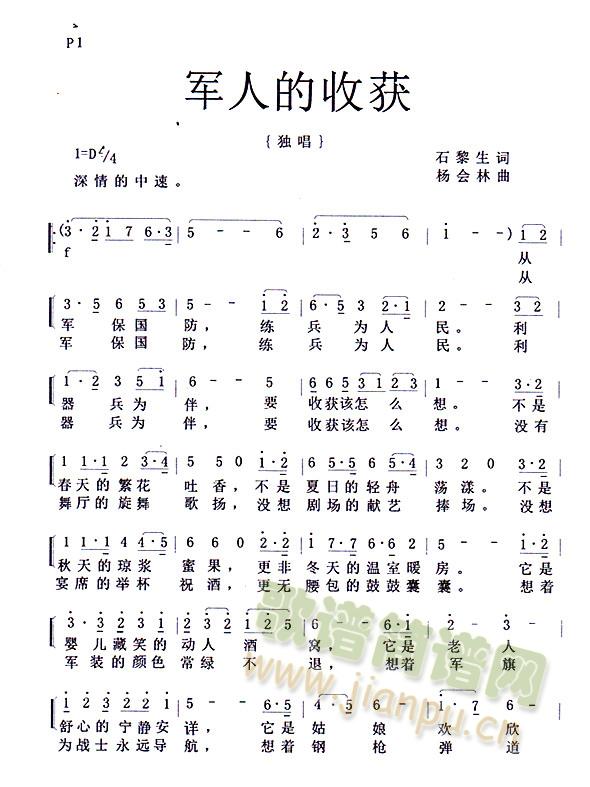 P1
军人的收获
{独唱}
1=D 4/4
石黎生词
深情的中速。
杨会林曲
(3·2 1 7 6·3 | 5 - - 6 | 2·3 5 6 | 1 - -) 1 2 |
f 从
从
3·5 6 5 3 | 5 - - 1 2 | 3 5 3 2·1 | 2 - - 3 2 |
军保国防,练兵为人民。利
军保国防,练兵为人民。利
1·2 3 5 1 | 6 - - 5 | 6 6 5 3 1 2 3 | 5 - - 5·5 |
器兵为伴,要收获该怎么想。不是
器兵为伴,要收获该怎么想。没有
1 1·1 2 3·4 | 5 5 0 1·1 | 6 5 6 5·4 | 5 2 0 5·5 |
春天的繁花吐香,不是夏日的轻舟荡漾。不是
舞厅的旋舞歌扬,没想剧场的献艺捧场。没想
1 1·1 4·5 | 6 6 0 2·2 | 1 1·1 7 6 7 | 5 - - 1·2 |
秋天的琼浆蜜果,更非冬天的温室暖房。它是
宴席的举杯祝酒,更无腰包的鼓鼓囊囊。想着
婴儿藏笑的动人酒窝,它是老人
军装的颜色常绿不退,想着军旗
舒心的宁静安详,它是姑娘欢欣
为战士永远导航,想着钢枪弹道
歌谱简谱网
www.jianpu.cn